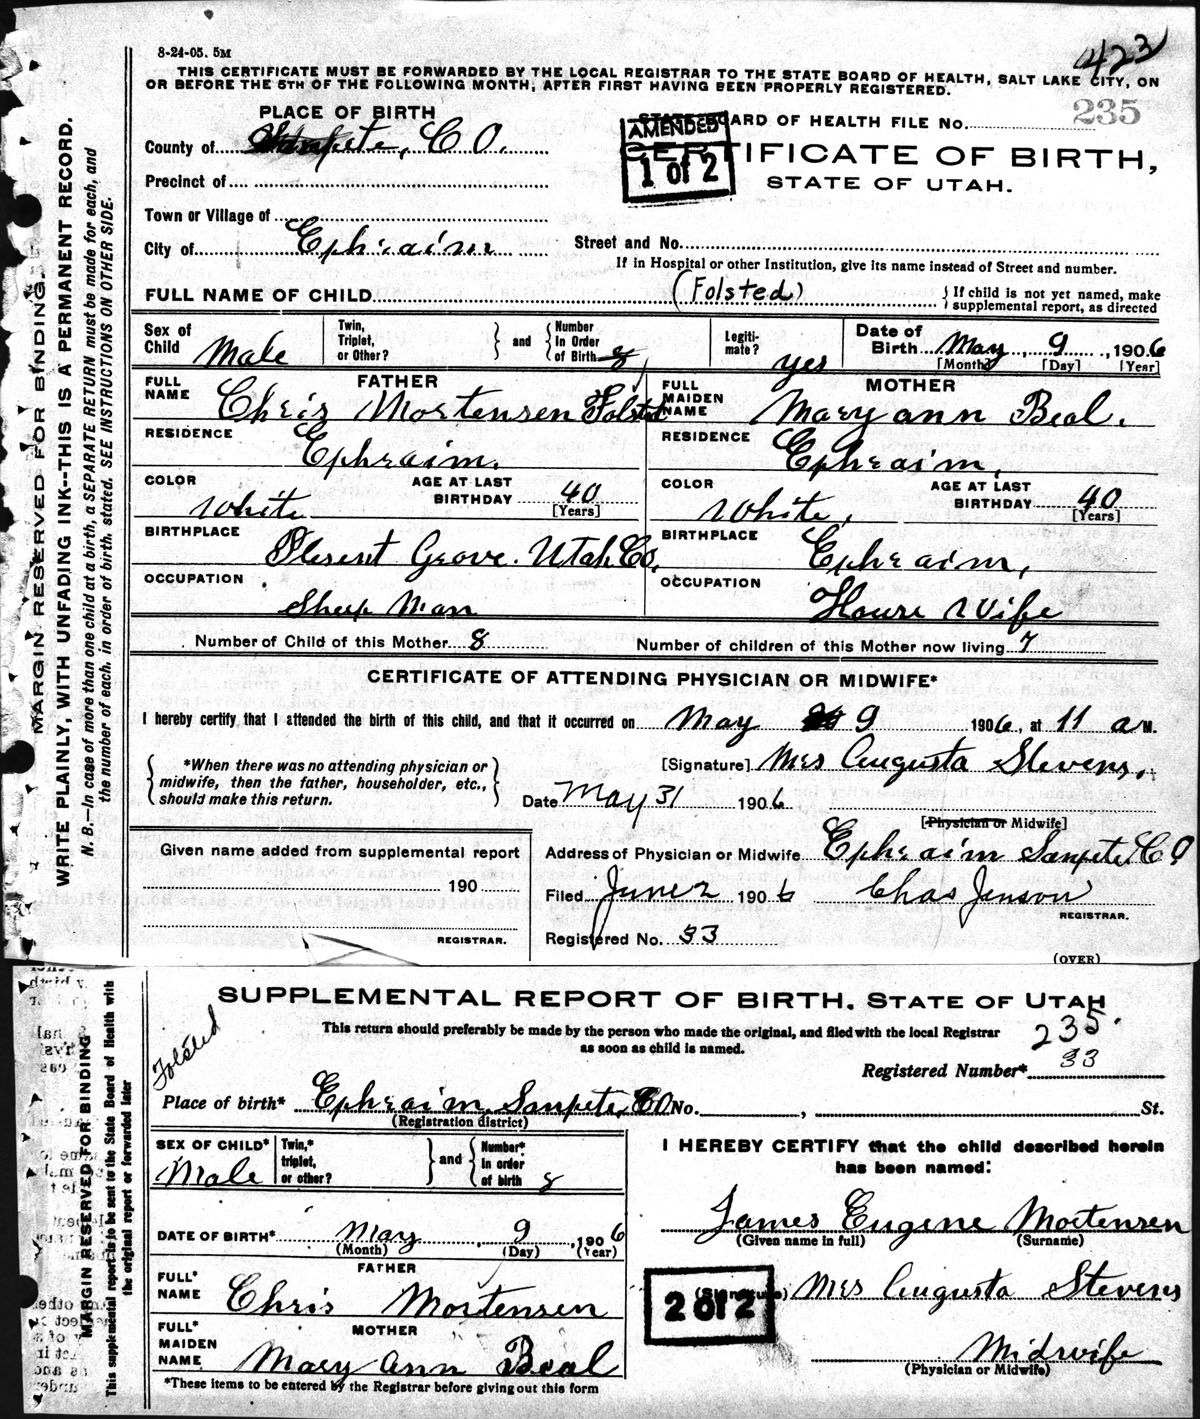 423
8-24-05. 5M
THIS CERTIFICATE MUST BE FORWARDED BY THE LOCAL REGISTRAR TO THE STATE BOARD OF HEALTH, SALT LAKE CITY, ON
OR BEFORE THE 5TH OF THE FOLLOWING MONTH, AFTER FIRST HAVING BEEN PROPERLY REGISTERED.
PLACE OF BIRTH
STATE BOARD OF HEALTH FILE No. 235
County of Sanpete, C O.
AMENDED
1 of 2
CERTIFICATE OF BIRTH,
STATE OF UTAH.
Precinct of
Town or Village of
City of Ephraim
Street and No.
If in Hospital or other Institution, give its name instead of Street and number.
FULL NAME OF CHILD (Folsted) If child is not yet named, make supplemental report, as directed
Sex of Child Male Twin, Triplet, or Other? and Number In Order of Birth 8 Legiti-mate? yes Date of Birth May, 9, 1906
[Month] [Day] [Year]
FATHER
FULL NAME Chris Mortensen Folsted
MOTHER
FULL MAIDEN NAME Mary ann Beal.
RESIDENCE Ephraim. RESIDENCE Ephraim,
COLOR White AGE AT LAST BIRTHDAY 40 [Years] COLOR White, AGE AT LAST BIRTHDAY 40 [Years]
BIRTHPLACE Plesent Grove. Utah Co. BIRTHPLACE Ephraim,
OCCUPATION Sheep Man OCCUPATION House Wife
Number of Child of this Mother 8 Number of children of this Mother now living 7
CERTIFICATE OF ATTENDING PHYSICIAN OR MIDWIFE*
I hereby certify that I attended the birth of this child, and that it occurred on May 9 1906, at 11 a M.
*When there was no attending physician or
midwife, then the father, householder, etc.,
should make this return.
[Signature] Mrs Augusta Stevens.
Date May 31 1906
[Physician or Midwife]
Given name added from supplemental report
190
REGISTRAR.
Address of Physician or Midwife Ephraim Sanpete, C O
Filed June 2 1906 Chas Jenson
REGISTRAR.
Registered No. 33
(OVER)
MARGIN RESERVED FOR BINDING.
WRITE PLAINLY, WITH UNFADING INK--THIS IS A PERMANENT RECORD.
N. B.—In case of more than one child at a birth, a SEPARATE RETURN must be made for each, and
the number of each, in order of birth, stated. SEE INSTRUCTIONS ON OTHER SIDE.
SUPPLEMENTAL REPORT OF BIRTH. STATE OF UTAH
This return should preferably be made by the person who made the original, and filed with the local Registrar
as soon as child is named.
235.
Registered Number* 33
Folsted
Place of birth* Ephraim, Sanpete, CO No. , St.
(Registration district)
SEX OF CHILD* Male Twin,* triplet, or other? and Number* In order of birth 8
DATE OF BIRTH* May, 9, 1906
(Month) (Day) (Year)
FATHER
FULL* NAME Chris Mortensen
MOTHER
FULL* MAIDEN NAME Mary Ann Beal
*These items to be entered by the Registrar before giving out this form
I HEREBY CERTIFY that the child described herein
has been named:
James Eugene Mortensen
(Given name in full) (Surname)
2 of 2
(Signature) Mrs Augusta Stevens
Midwife
(Physician or Midwife)
MARGIN RESERVED FOR BINDING
This supplemental report is to be sent to the State Board of Health with
the original report or forwarded later